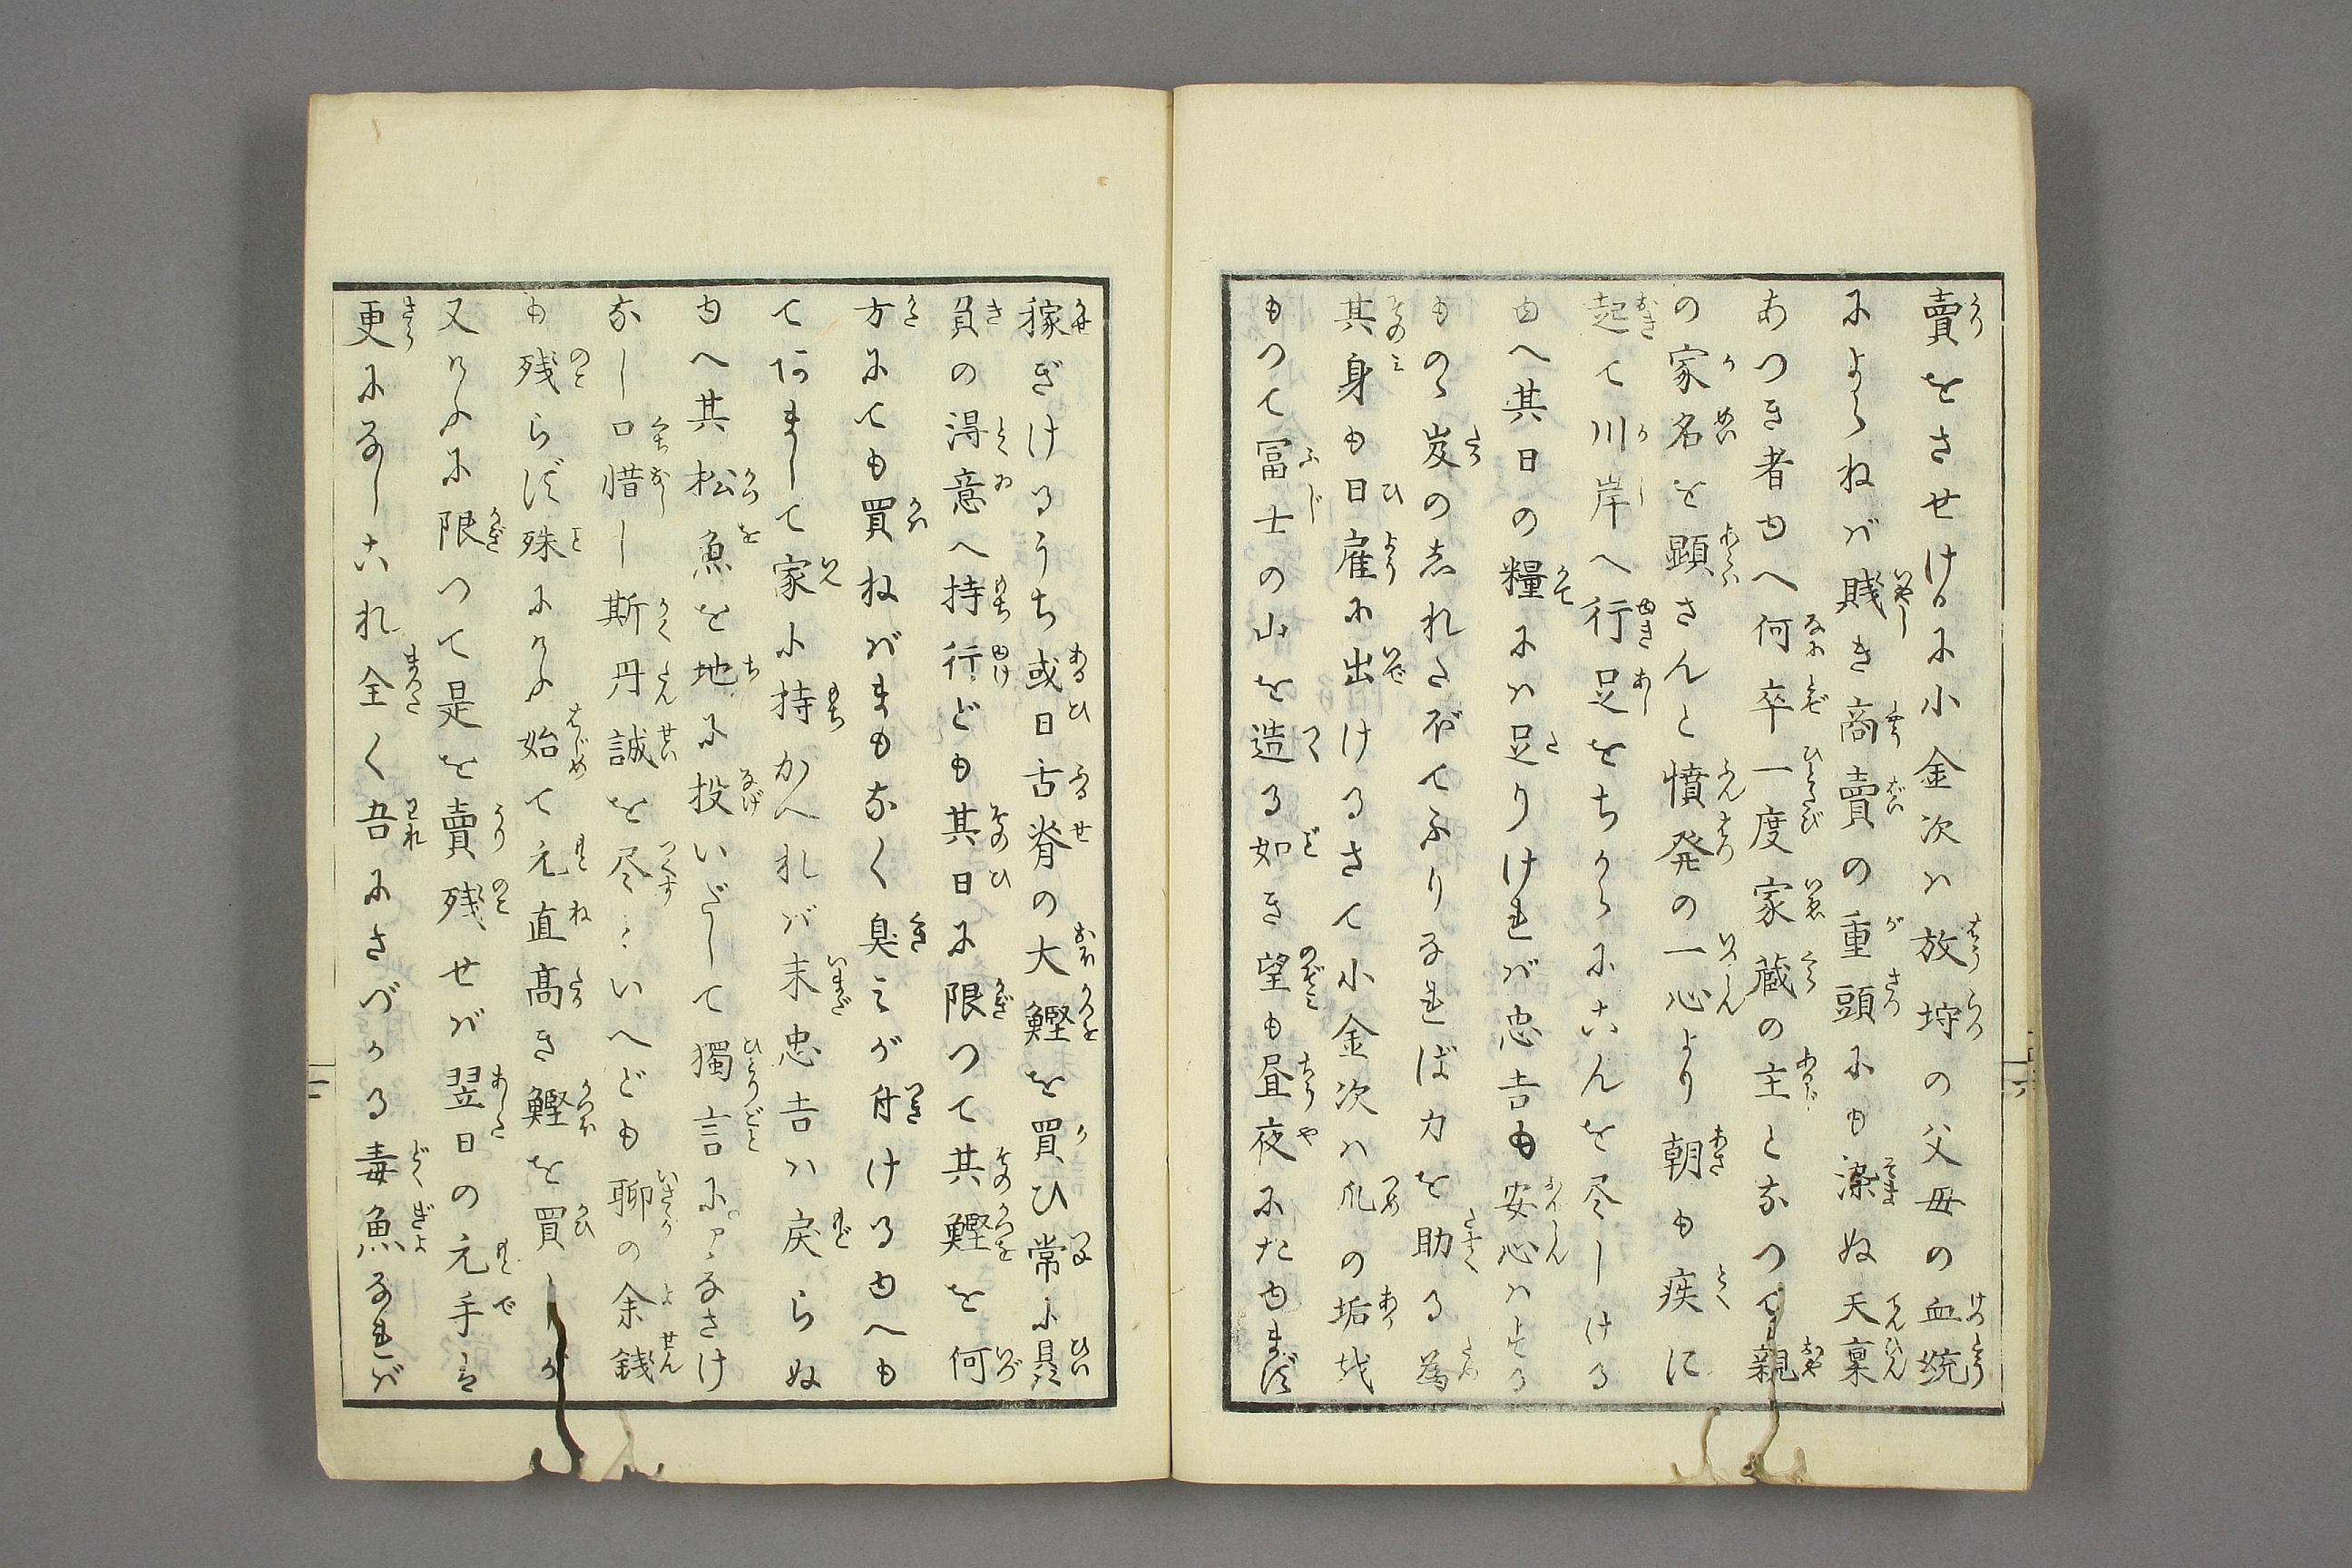 賣をさせけるに小金次ハ放埓の父母の血統
によらねバ賎き商賣の重頭にも染ぬ天稟
あつき者ゆへ何卒一度家蔵の主となつて親
の家名を顕さんと憤発の一心より朝も疾に
起て川岸へ行足をちからにこんを尽しける
ゆへ其日の糧にハ足りけれバ忠吉も安心ハする
ものゝ炭のおれさがてふりなれば力を助る為
其身も日雇に出けるさて小金次ハ爪の垢域
もつて冨士の山を造る如き望も昼夜にたゆまず
稼ぎけるうち或日古脊の大鰹を買ひ常に贔
負の得意へ持行ども其日に限つて其鰹を何
方にても買ねバまもなく臭みが付けるゆへも
てあまして家に持かへれバ未忠吉ハ戻らぬ
ゆへ其松魚を地に投いだして獨言にアヽなさけ
なし口惜し斯丹誠を尽すといへども聊の余銭
も残らず殊にけふ始て元直高き鰹を買しが
又けふに限つて是を賣残せバ翌日の元手も
更になしこれ全く吾にさづかる毒魚なれバ